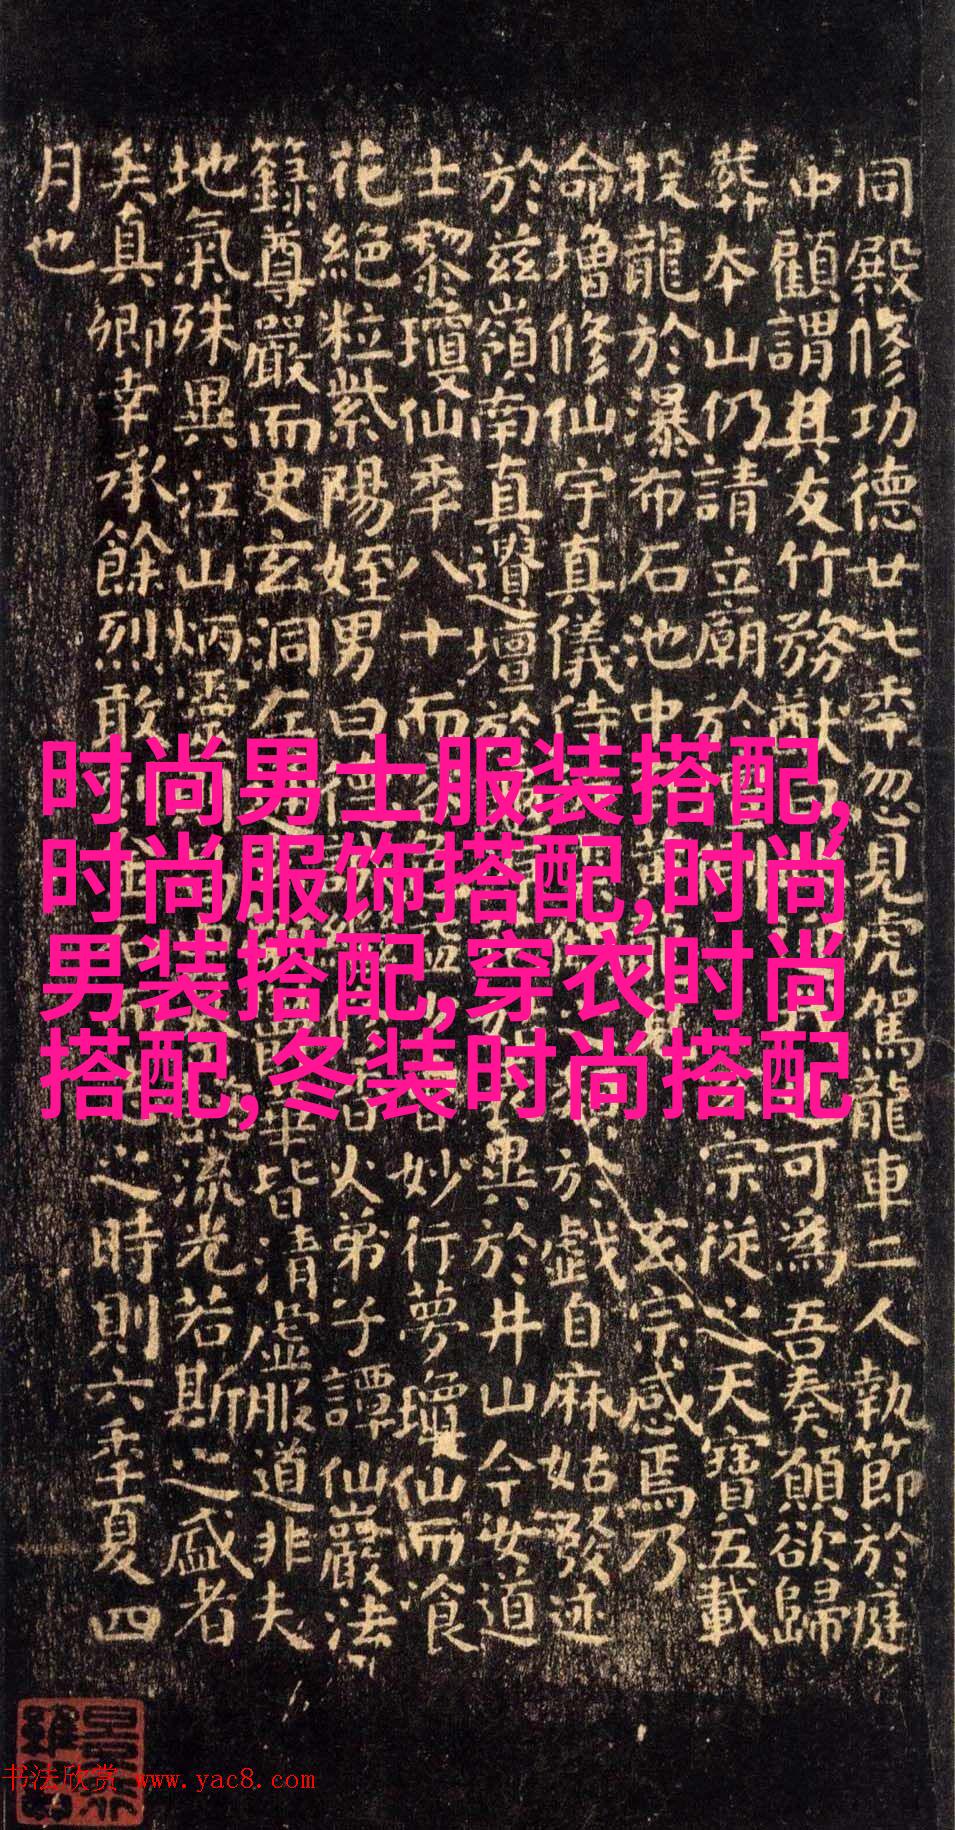 同殿修功德廿七年忽見虎駕龍車二人執節於庭
中顧謂其友竹務猷可為吾奏願欲歸
葬本山仍請立廟於宗從之天寶五載
投龍於瀑布石池中玄宗感焉乃
命增修仙宇真儀侍於戲自麻姑發迹
於茲嶺南真遺壇於異於井山今女道
士黎瓊仙年八十而妙行夢瓊仙而飡
花絕粒紫陽姪男曰德火弟子譚仙巖法
籙尊嚴而史玄洞左皆清虛服道非夫
地氣殊異江山炳靈流光若斯之盛者
矣真卿幸承餘烈敢之時則六年夏四
月也
时尚男士服装搭配,
时尚服饰搭配,时尚
男装搭配,穿衣时尚
搭配,冬装时尚搭配
书法欣赏 www.yac8.com